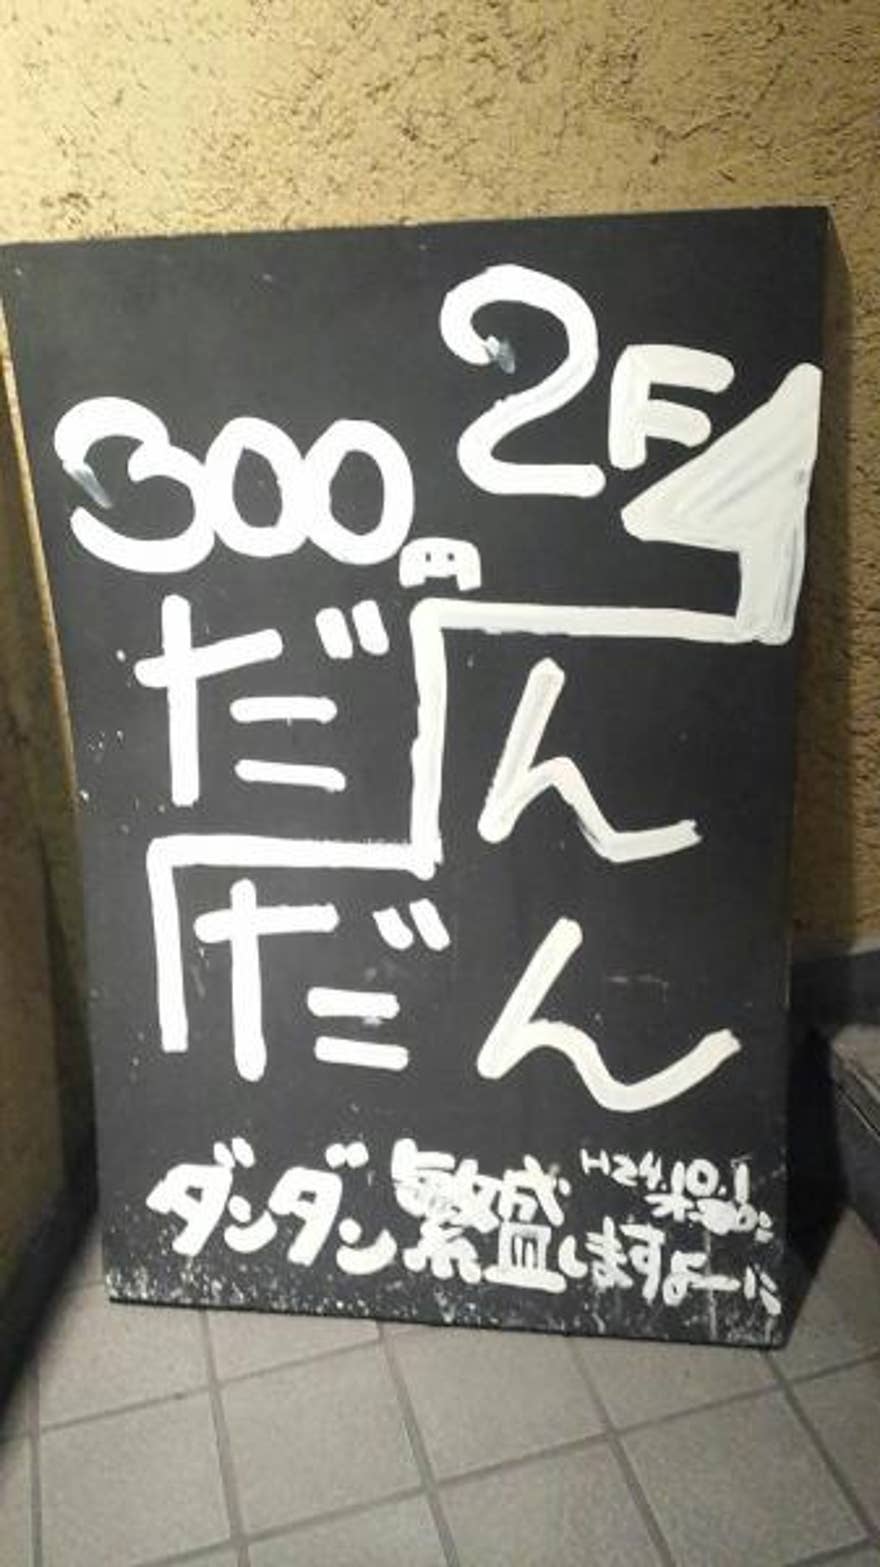 2F
300円
だん
だん
H24.10.1
ダンダン繁盛しますよー!!